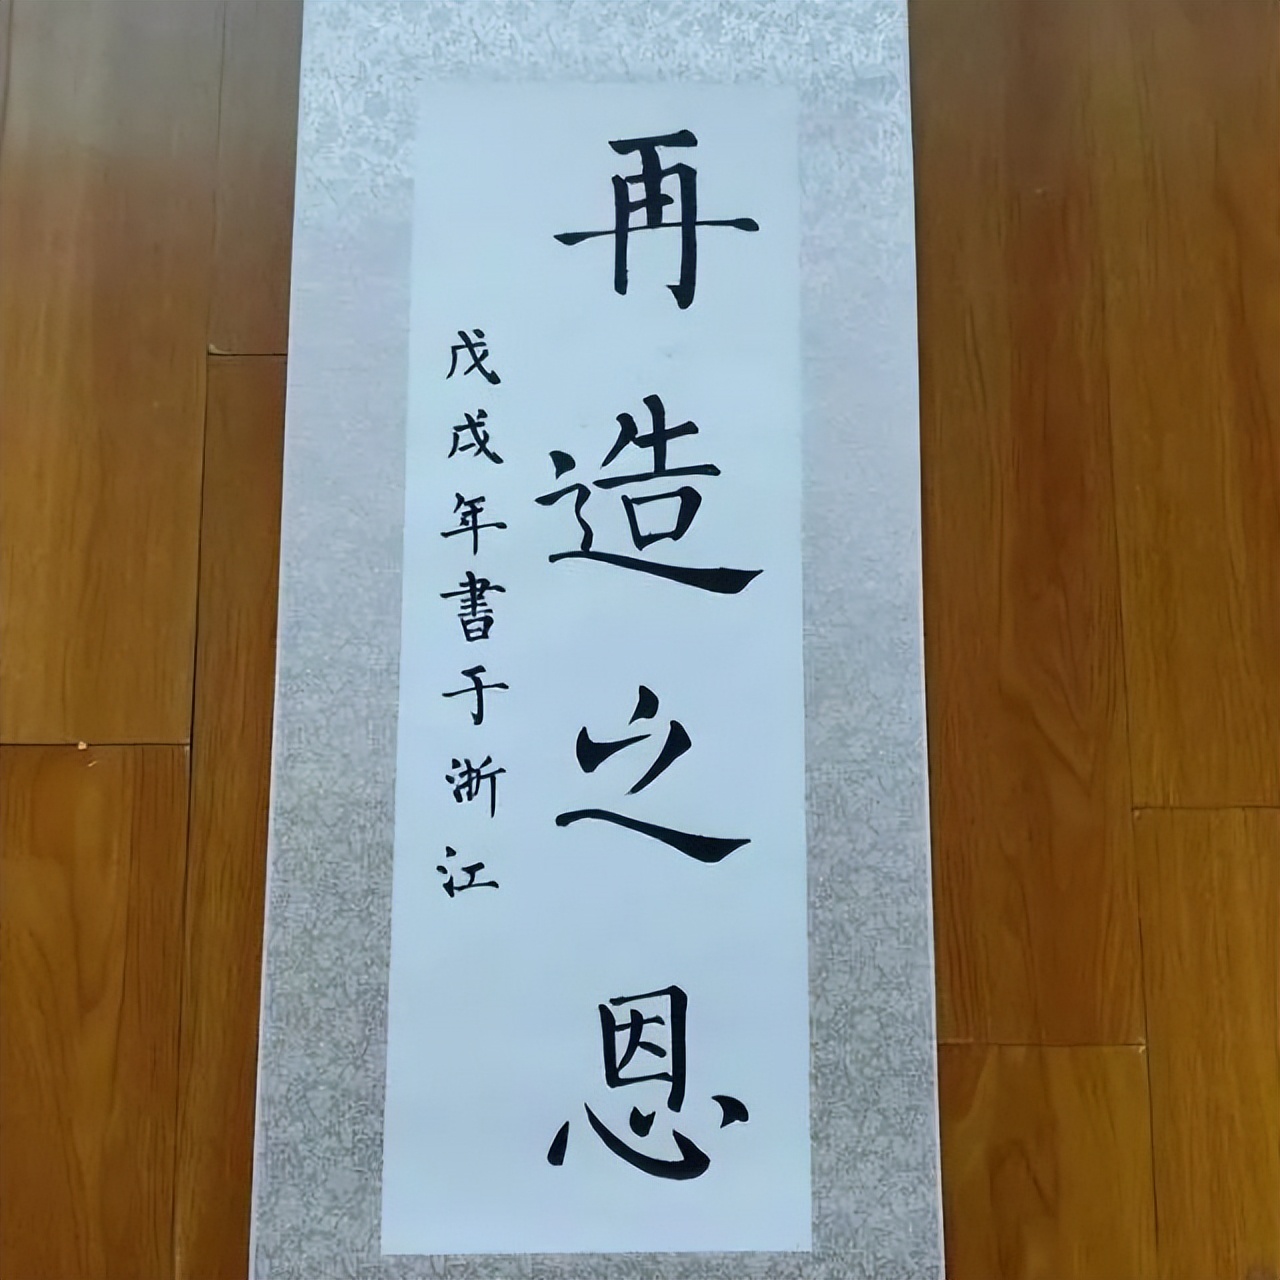 再造之恩
戊戌年書于浙江